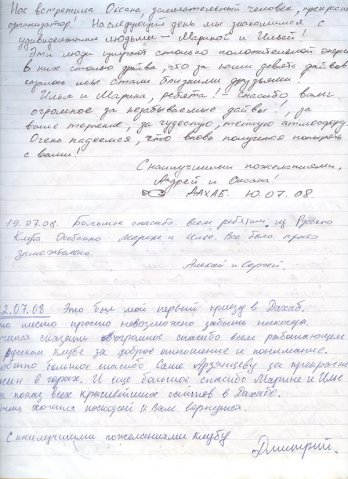 Нас встретила Оксана, замечательный человек, прекрасный
организатор! На следующий день мы знакомимся с
удивительными людьми – Мариной и Ильёй!
Эти люди столько положительной энергии
в них столько драйва, что за наши девять дайвов
мы стали близкими друзьями.
Илья и Марина, ребята! Спасибо вам
огромное за незабываемые дайвы!, за
ваше терпение, за чудесную, теплую атмосферу.
Очень надеемся, что вновь получится понырять
с вами!
С наилучшими пожеланиями,
Андрей и Оксана!
ДАХАБ. 10.07.08
19.07.08. Большое спасибо всем ребятам из Русского
Клуба. Особенно Марине и Илье. Все было просто
замечательно.
Алексей и Сергей.
2.07.08 Это был мой первый приезд в Дахаб.
это место просто невозможно забыть никогда.
сказать огромное спасибо всем работающим
русском клубе за доброе отношение и понимание.
большое спасибо Саше за прекрасные
в горах. И еще большое спасибо Марине и Илье
за показ всех красивейших сайтов в Дахабе.
хочется поскорей к Вам вернуться.
С наилучшими пожеланиями Клубу
Дмитрий.